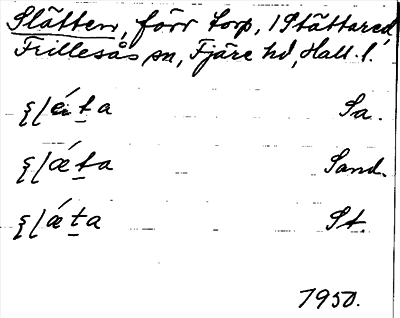 Slätten, förr torp, i Stättared,
Frillesås sn, Fjäre hd, Hall. l.
Sa.
Sand.
St.
1950.